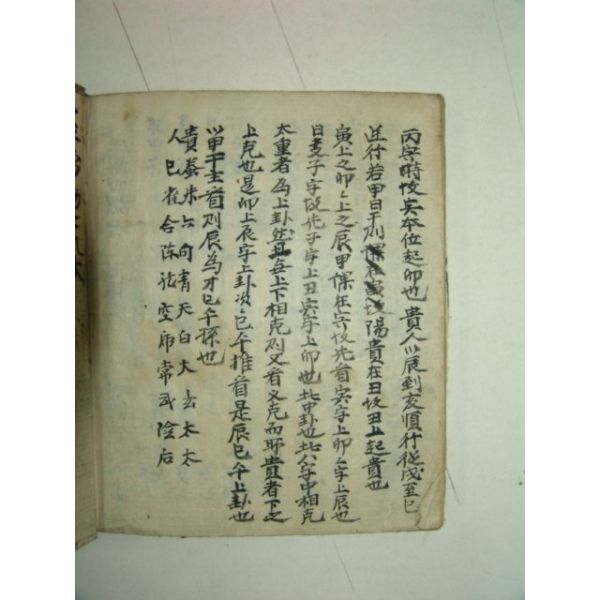 丙字時故寅本位起卯也 貴人以辰到亥順行從戌至巳
逆行若甲日于則 陽貴在丑故丑上起貴也
寅上之卯卯上之辰甲課在寅故先看寅字上卯卯字上辰也
日支子字故先子字上丑寅字上卯也此中卦也此八字中相克
太重者為上卦然且每上下相克則又看又克而耶貴者下之
上克也是卯上辰字上卦次次巳午推看是辰巳午上卦也
以甲干主看則辰為才巳午孫也
貴 朱六句青天白大玄太太
人巳雀合陳龍空帍常武陰后